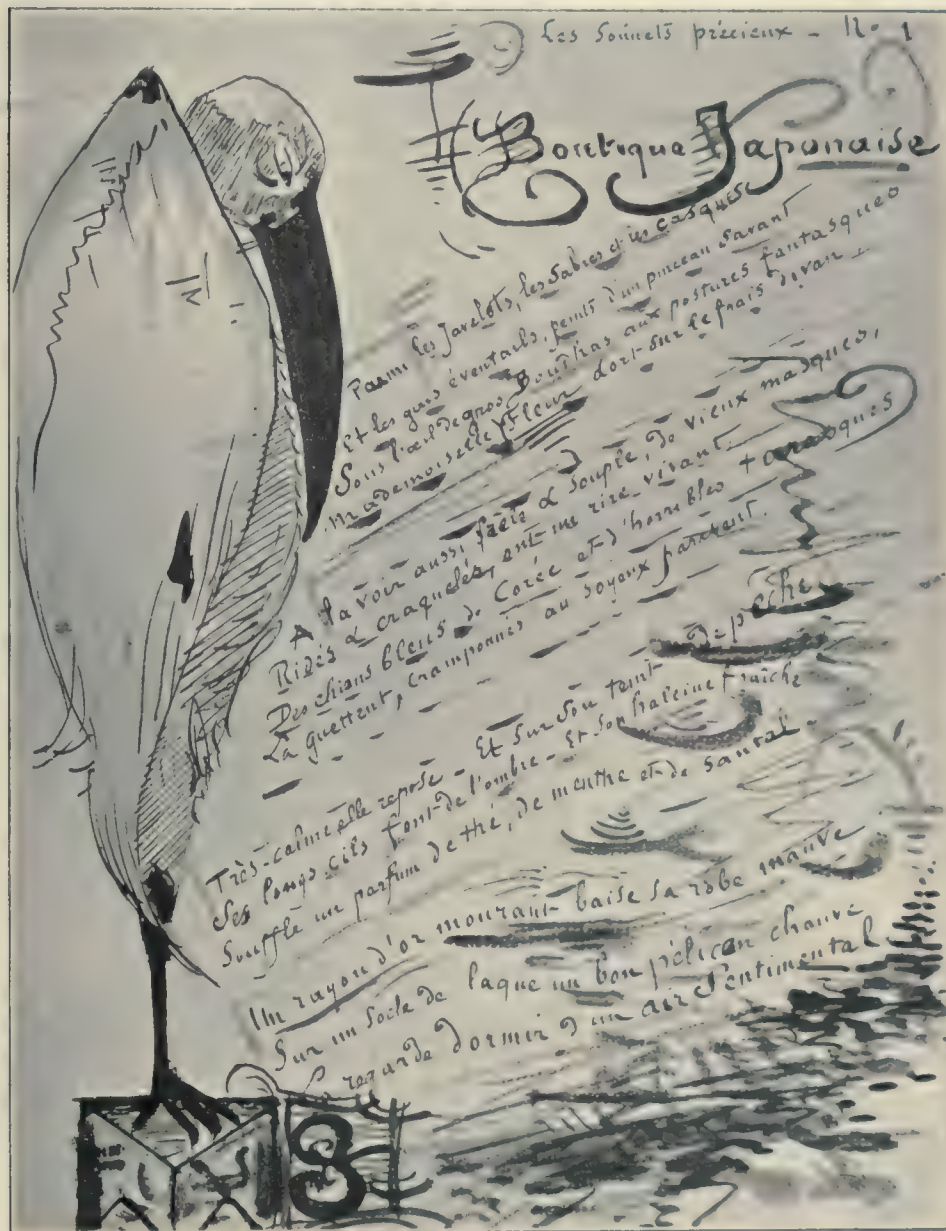 Les Sonnets précieux - No. 1
Boutique Japonaise
Parmi les Javelots, les Sabres et les casques
Et les gais éventails, peints d'un pinceau savant
Sous l'œil de gros Bouddhas aux postures fantasques
Mademoiselle Fleur dort sur le frais divan
A la voir aussi frêle & souple, de vieux masques,
Ridés & craquelés, ont un rire vivant.
Des chiens bleus de Corée et d'horribles tarasques
La guettent, cramponnés au soyeux paravent.
Très-calme elle repose - Et sur son teint de pêche
Ses longs cils font de l'ombre - Et son haleine fraîche
Souffle un parfum de thé, de menthe et de santal
Un rayon d'or mourant baise sa robe mauve
Sur un Socle de laque un bon pélican chauve
La regarde dormir d'un air Sentimental